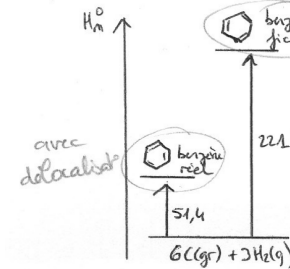 H°m
benz
fic
avec
délocalisat°
benzène
réel
221
51,4
6C(gr) + 3H₂(g)